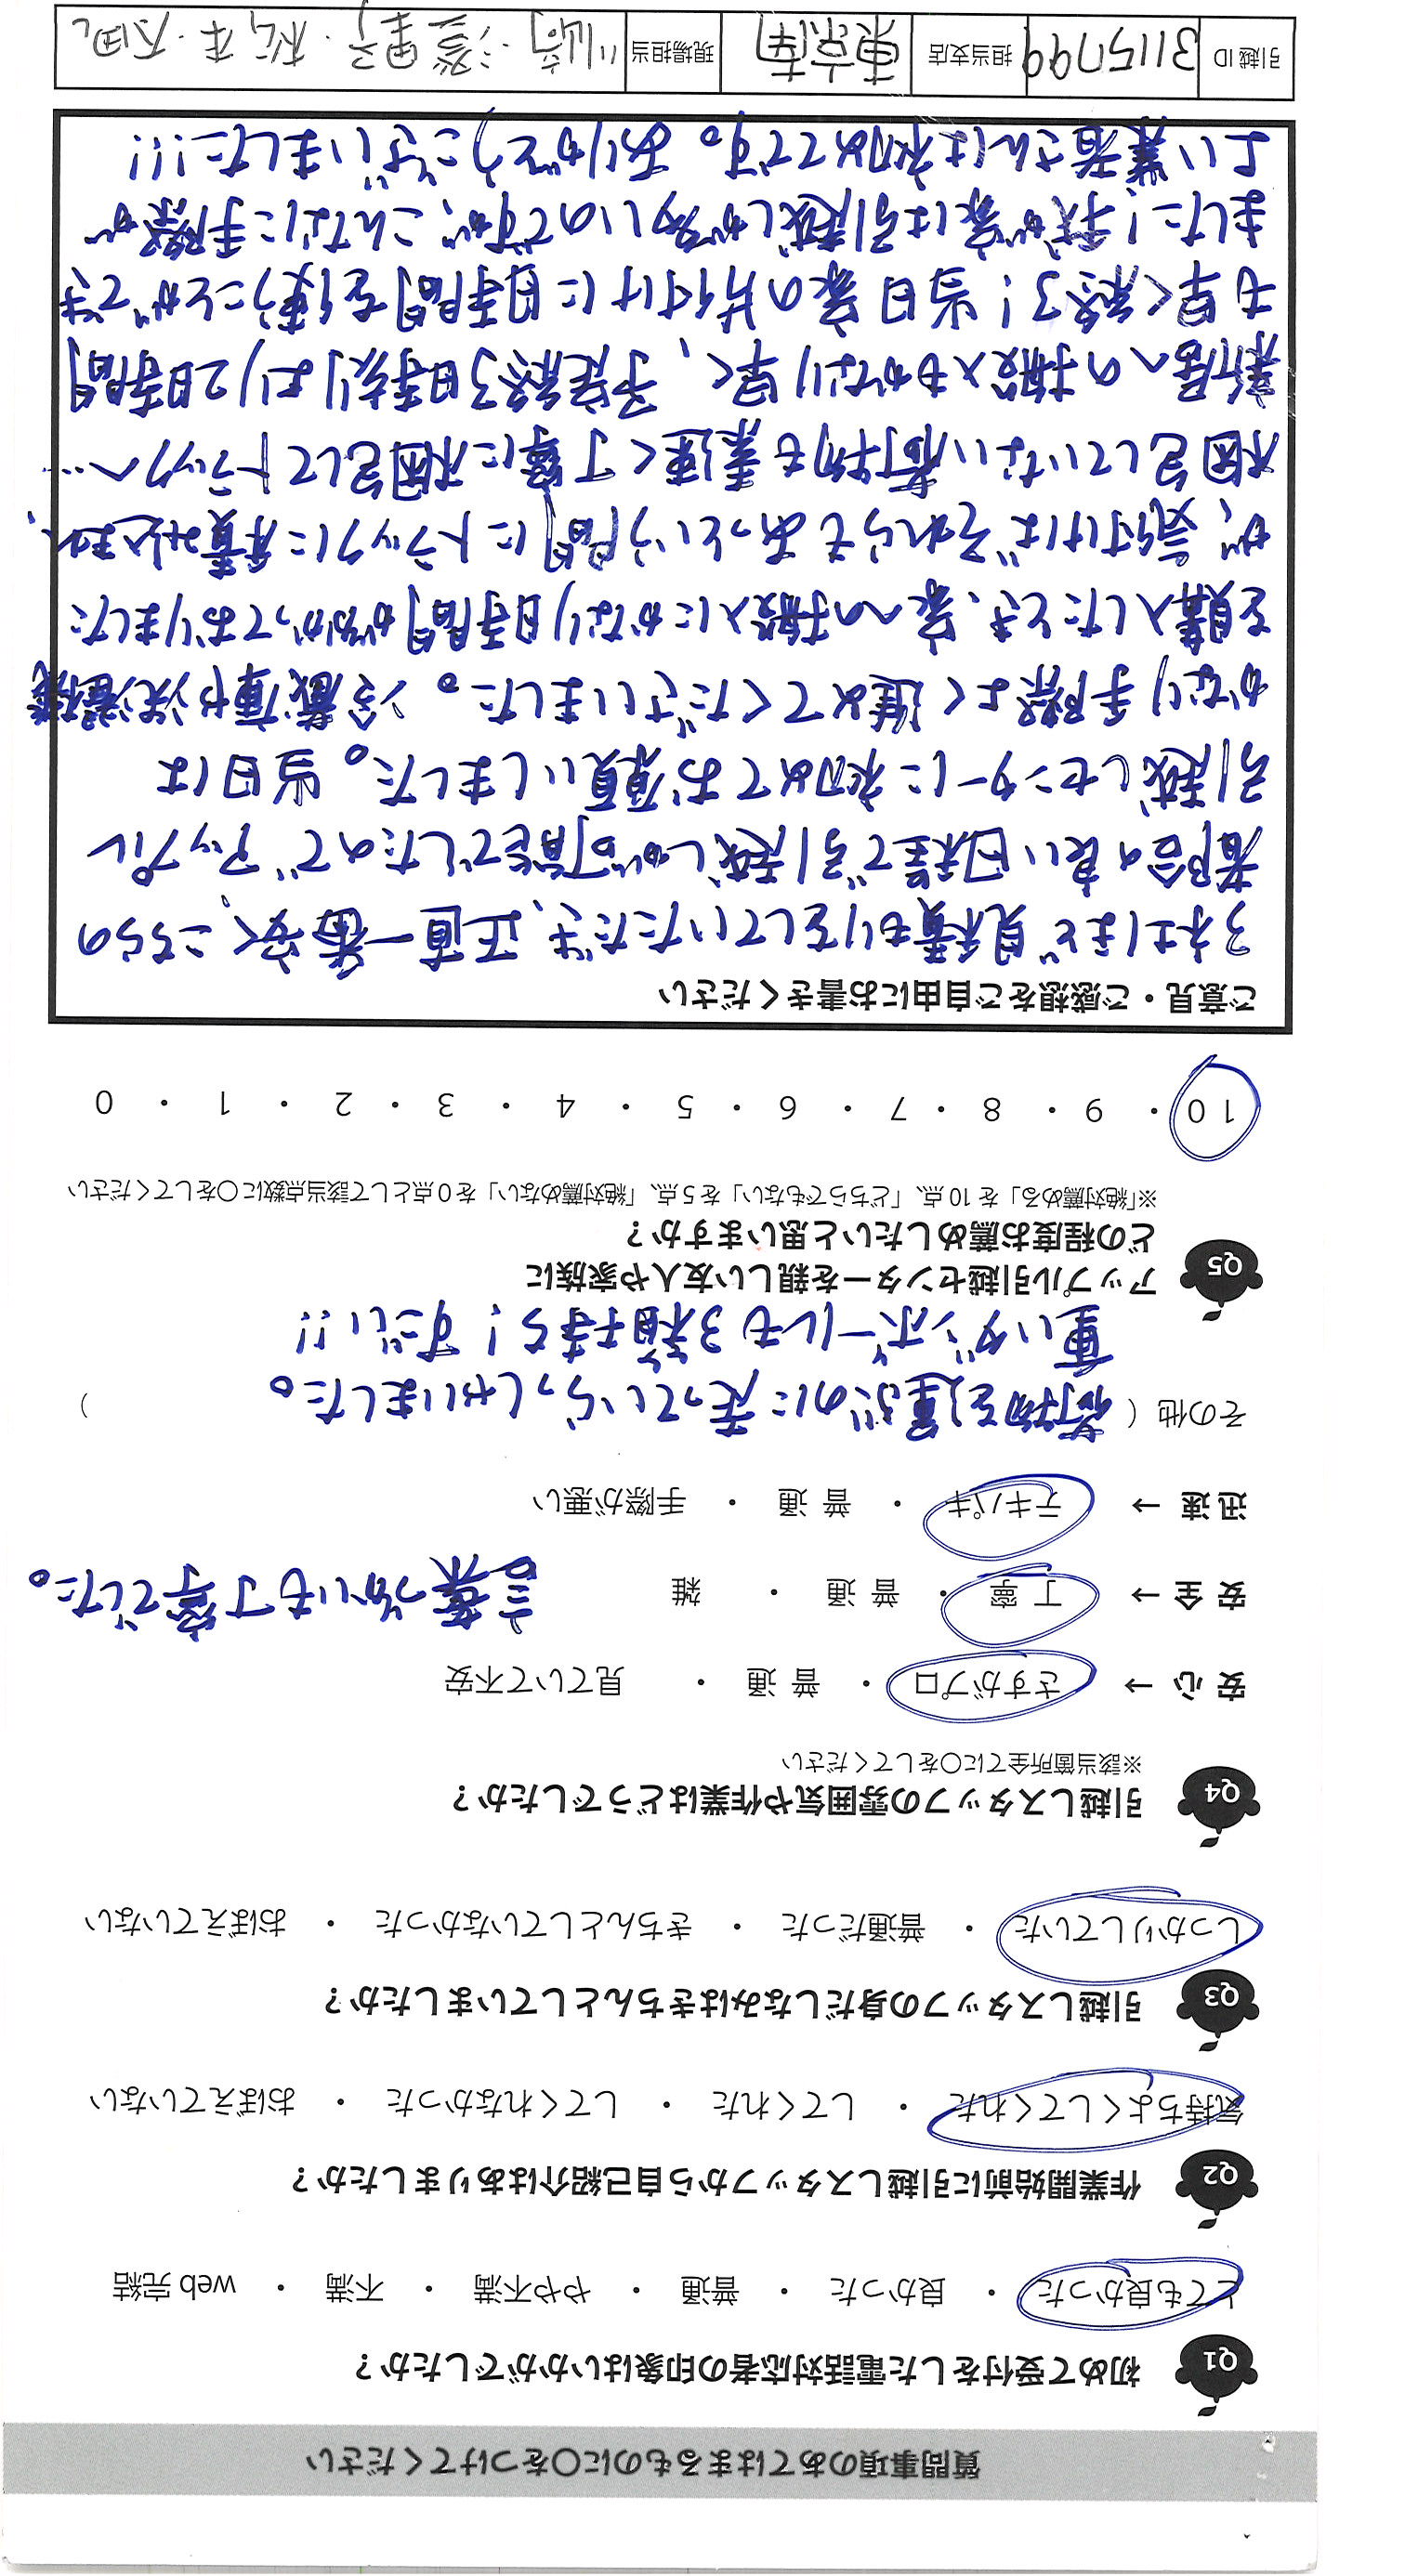 質問事項のあてはまるものに〇をつけてください
Q1 初めて受付をした電話対応者の印象はいかがでしたか？
とても良かった ・ 良かった ・ 普通 ・ やや不満 ・ 不満 ・ web 完結
Q2 作業開始前に引越しスタッフから自己紹介はありましたか？
気持ちよくしてくれた ・ してくれた ・ してくれなかった ・ おぼえていない
Q3 引越しスタッフの身だしなみはきちんとしていましたか？
しっかりしていた ・ 普通だった ・ きちんとしていなかった ・ おぼえていない
Q4 引越しスタッフの雰囲気や作業はどうでしたか？
※該当箇所全てに〇をしてください
安 心 → さすがプロ ・ 普 通 ・ 見ていて不安
安 全 → 丁 寧 ・ 普 通 ・ 雑 言葉づかいも丁寧でした。
迅 速 → テキパキ ・ 普 通 ・ 手際が悪い
その他 ( 荷物を運ぶのに走っていらっしゃいました。 )
重いダンボールも3箱持ち！すごい!!
Q5 アップル引越センターを親しい友人や家族に
どの程度お薦めしたいと思いますか？
※「絶対薦める」を 10 点、「どちらでもない」を 5 点、「絶対薦めない」を 0 点として該当点数に〇をしてください
10 ・ 9 ・ 8 ・ 7 ・ 6 ・ 5 ・ 4 ・ 3 ・ 2 ・ 1 ・ 0
ご意見・ご感想をご自由にお書きください
3社ほど見積もりをしていただき、正直一番安く、こちらの
都合の良い日程で引越しが可能でしたのでアップル
引越しセンターに初めてお願いしました。当日は
かなり手際よく進めてくださいました。冷蔵庫や洗濯機
を購入したとき、家への搬入にかなり時間がかかっておりました
が、気付けばそれらもあっという間にトラックに積み込まれ、
梱包していない荷物も素速く丁寧に梱包してトラックへ…
新居への搬入もかなり早く、予定終了時刻より2時間
も早く終了！当日家の片付けに時間を使うことができ
ました！我が家は引越しが多いのですが、こんなに手際が
よい業者さんは初めてです。ありがとうございました!!!
引越 ID 3115799 担当支店 東京南 現場担当 川崎・澄里子・松本・大田